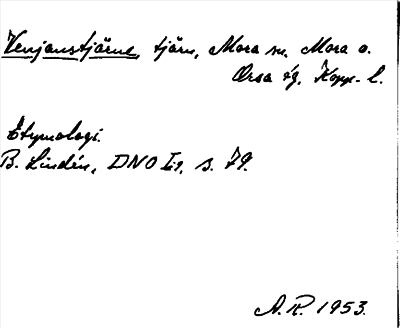 Venjanstjärne, tjärn, Mora sn, Mora o.
Orsa tg, Kopp. l.
Etymologi.
B. Lindén, DNO I:1, s. 79.
A. R. 1953.